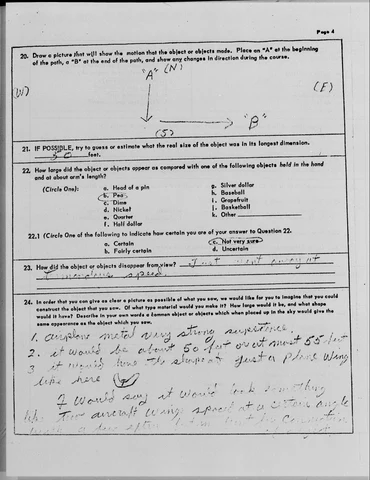 Page 4
20. Draw a picture that will show the motion that the object or objects made. Place an "A" at the beginning
of the path, a "B" at the end of the path, and show any changes in direction during the course.
"A" (N)
(W)
(E)
"B"
(S)
21. IF POSSIBLE, try to guess or estimate what the real size of the object was in its longest dimension.
50 feet.
22. How large did the object or objects appear as compared with one of the following objects held in the hand
and at about arm's length?
(Circle One): a. Head of a pin
b. Pea
c. Dime
d. Nickel
e. Quarter
f. Half dollar
g. Silver dollar
h. Baseball
i. Grapefruit
j. Basketball
k. Other
22.1 (Circle One of the following to indicate how certain you are of your answer to Question 22.
a. Certain
b. Fairly certain
c. Not very sure
d. Uncertain
23. How did the object or objects disappear from view? Just went away at
speed.
24. In order that you can give as clear a picture as possible of what you saw, we would like for you to imagine that you could
construct the object that you saw. Of what type material would you make it? How large would it be, and what shape
would it have? Describe in your own words a common object or objects which when placed up in the sky would give the
same appearance as the object which you saw.
1. airplane metal very strong
2. it would be about 50 feet or at most 55 feet
3 it would have the shape of just a plane wing
like here
I would say it would look something
like two aircraft wings spaced at a certain angle